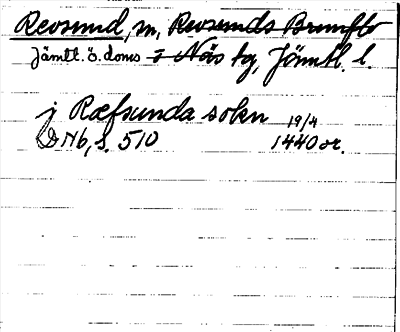 Revsund, sn, Revsunds Brunflo
Jämtl. ö. doms i Näs tg, Jämtl. l.
j Ræfsunda sokn 19/4
DN 6, s. 510 1440 or.